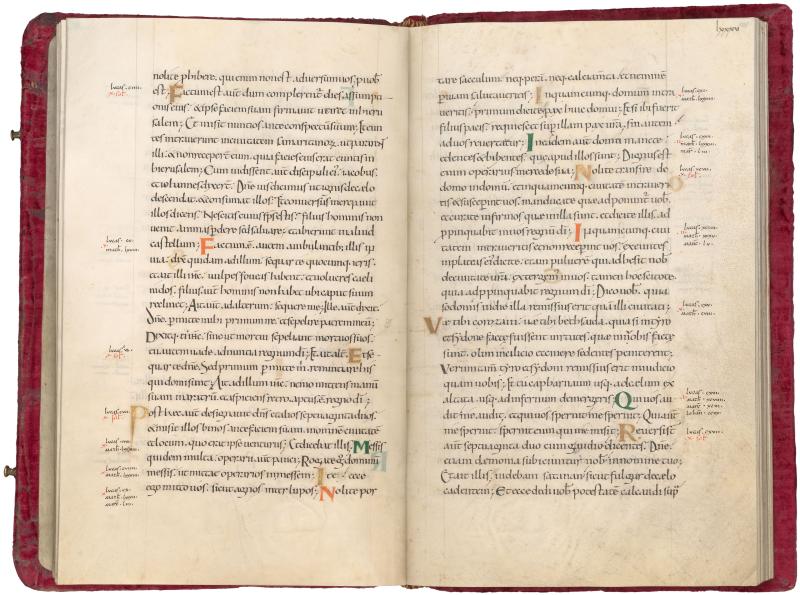 nolite phibere. qui enim non est aduersum uos. p uob
est; Factum est aut dum complerent dies assumpti
onis eius. & ipse faciem suam firmauit ut iret in hieru
salem; Et misit nuntios ante conspectu suum; Et eun
tes intrauerunt in ciuitatem samaritanor. ut pararent
illi. & non receper eum. quia facies eius erat euntis in
hierusalem; Cum uidissent aut discipuli ei. iacobus.
& iohannes dixer. Dne uis dicimus ut ignis de caelo
descendat. & consumat illos; Et conuersus increpauit
illos dicens. Nescitis cuius sps estis. filius hominis non
uenit animas pdere sed saluare; Et abierunt in aliud
castellum; Factum e. autem ambulantib; illis in
uia. dix quidam ad illum. sequar te quocumq; ieris.
& ait illi ihc. uulpes foueas habent. & uolucres caeli
nidos. filius aut hominis non habet ubi caput suum
reclinet; Ait aut. ad alterum. sequere me; Ille aut dixit.
Dne. pmitte mihi primum ire. & sepelire patrem meu;
Dixitq; ei ihc. sine ut mortui sepeliant mortuos suos.
tu autem uade. adnuntia regnum di; Et ait alt. Se
quar te dne. Sed primum pmitte m. renuntiare his
qui domi sunt; Ait. ad illum ihc. nemo mittens manu
suam in aratru. & aspiciens retro. aptus e. regno di;
Post haec aut designauit dns & alios septuaginta duos.
& misit illos binos. ante faciem suam. in omne ciuitate
& locum. quo erat ipse uenturus; Et dicebat illis. Messis
quidem multa. operarii aut pauci; Rogate g domnum
messis. ut mittat operarios in messem; Ite. ecce
ego mitto uos. sicut agnos inter lupos; Nolite por
tare sacculum. neq; pera. neq; calciamta. & nemine
p uiam salutaueritis; In quamcumq; domum intra
ueritis. primum dicite pax huic domui; Et si ibi fuerit
filius pacis. requiescet sup illam pax ura; sin autem.
ad uos reuertetur; In eadem aut domu manete.
edentes & bibentes. quae apud illos sunt; Dignus est
enim operarius mercede sua; Nolite transire de
domo in domu. & in quamcumq; ciuitate intraueri
tis & susceperint uos. manducate quae adponunt uob.
& curate infirmos qui in illa sunt. & dicite illis. ad
ppinquabit in uos regnu di; In quamcumq; ciui
tatem intraueritis & non receperint uos. exeuntes
in plateas ei dicite. etiam puluere qui adhesit nob
de ciuitate ura. extergim in uos. tamen hoc scitote.
quia adppinquabit regnum di; Dico uob. quia
sodomis in die illa remissius erit. qua illi ciuitati;
Vae tibi corozain uae tibi bethsaida. quia si in tyro
& sydone factae fuissent uirtutes. quae in uobis factae
sunt. olim in cilicio & cinere sedentes peniterent;
Verumtam tyro & sydoni remissius erit in iudicio
quam uobis; Et tu capharnaum usq; ad caelum ex
altata. usq; ad infernum demergeris; Qui uos au
dit me audit. & qui uos spernit me spernit; Qui aut
me spernit. spernit eum qui me misit; Reuersi st
aut septuaginta duo cum gaudio dicentes. Dne.
etiam daemonia subiciuntur nob. in nomine tuo;
Et ait illis. uidebam satanan sicut fulgur de caelo
cadentem; Et ecce dedi uob potestate calcandi sup